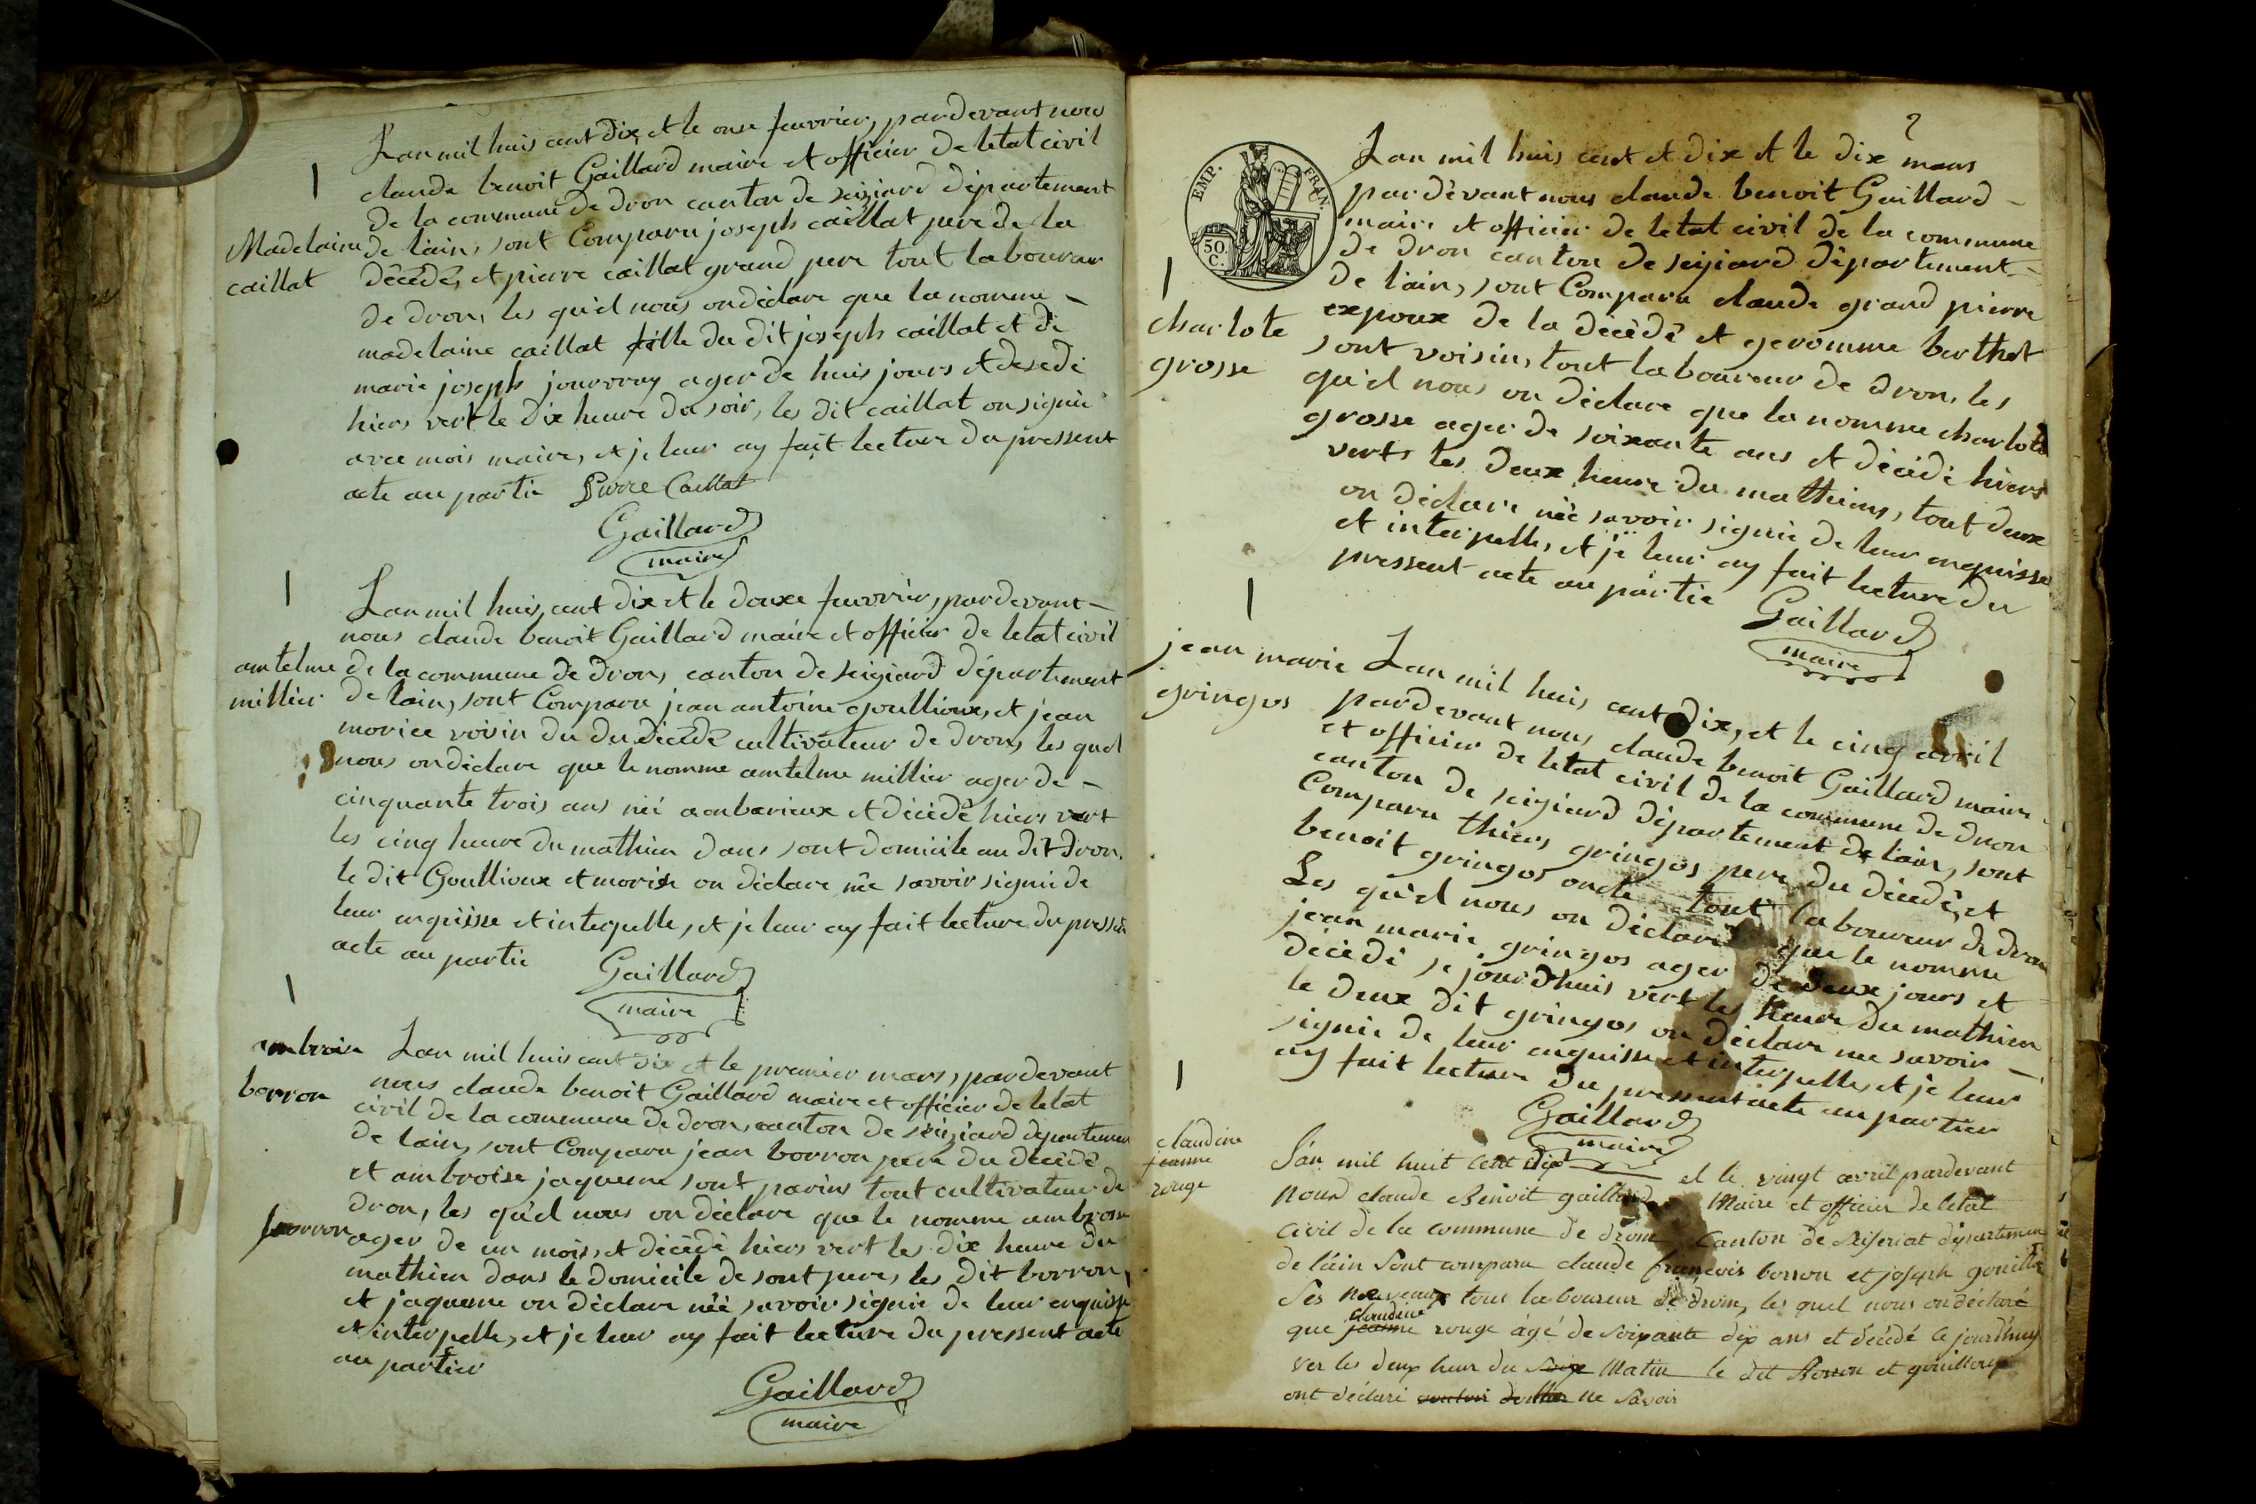 Lan mil huis cent dix, et le onse feuvrier, pardevant nous
claude benoit Gaillard maire et officier de letat civil
de la commune de dron canton de seiziard département
Madelaine
caillat
de lain, sont Comparu joseph caillat pere de la
décédé, et pierre caillat grand pere tout laboureur
de dron, les qu'el nous on déclare que la nomme
madelaine caillat fille du dit joseph caillat et de
marie joseph jouvray ager de huis jours et desedé
hiers vert le dix heure du soir, les dit caillat on signie
avec mois maire, et je leur ay fait lecture du pressent
acte au partie Pierre Caillat
Gaillard
maire
Lan mil huis cent dix et le douxe feuvrier, pardevant
nous claude benoit Gaillard maire et officier de letat civil
amtelme
millier
de la commune de dron, canton de seiziard département
de lain, sont Comparu jean antoine goullioux, et jean
morice voisin du du décédé cultivateur de dron, les quel
nous on déclare que le nomme amtelme millier ager de
cinquante trois ans néé a ambarieux et décédé hiers vert
les cinq heure du mathien dans sont domicile au dit dron.
le dit Goullioux et morice on déclare née savoir signie de
leur enquisse et interpelle, et je leur ay fait lecture du pressent
acte au partie
Gaillard
maire
ambroise
borron
Lan mil huis cent dix et le premier mars, pardevant
nous claude benoit Gaillard maire et officier de letat
civil de la commune de dron, canton de seiziard departement
de lain, sont Comparu jean borron pere du décédé
et ambroise jaqueme sont parins tout cultivateur de
dron, les qu'el nous on déclare que le nomme ambroise
borron ager de un mois, et décédé hiers vert les dix heure du
mathien dans le domicile de sont pere, les dit borron,
et jaqueme on déclare néé savoir signie de leur enquisse
et interpelle, et je leur ay fait lecture du pressent acte
au partier
Gaillard
maire
2
EMP. FRAN.
50 C.
Lan mil huis cent et dix et le dix mars
pardevant nous claude benoit Gaillard
maire et officier de letat civil de la commune
de dron canton de seiziard département
de lain, sont Comparu claude grand pierre
charlote
grosse
expoux de la décédé et geromme berthet
sont voisin, tout laboureur de dron, les
qu'el nous on déclare que la nomme charlote
grosse ager de soixante ans et décédé hiers
verts les deux heure du mathiens, tout deux
on déclare néé savoir signie de leur enquisse
et interpelle, et je leur ay fait lecture du
pressent acte au partie
Gaillard
maire
jean marie
gringos
Lan mil huis cent dix, et le cinq avril
pardevant nous claude benoit Gaillard maire
et officier de letat civil de la commune de dron
canton de seiziard département de lain, sont
Comparu thiers gringos pere du décédé, et
benoit gringos oncle tout laboureur de dron
Les qu'el nous on déclare que le nomme
jean marie gringos ager de deux jours et
décédé se jourdhuis vert les heure du mathien
le deux dit gringos on déclare née savoir
signie de leur enquisse et interpelle, et je leur
ay fait lecture du pressent acte au partier
Gaillard
maire
claudine
jeanne
rouge
L'an mil huit cent dix et le vingt avril pardevant
nous claude Benoit gaillard Maire et officier de letat
civil de la commune de drom Canton de Seiseriat département
de l'ain Sont comparu claude françois borron et joseph gouilloux
Ses neveaux tous laboureur de drom, les quel nous on déclaré
que jeanne claudine rouge âgé de Soixante dix ans et décédé ce jourd'huy
ver les deux heur du Matin le dit Borron et gouilloux
ont déclaré ne Savoir